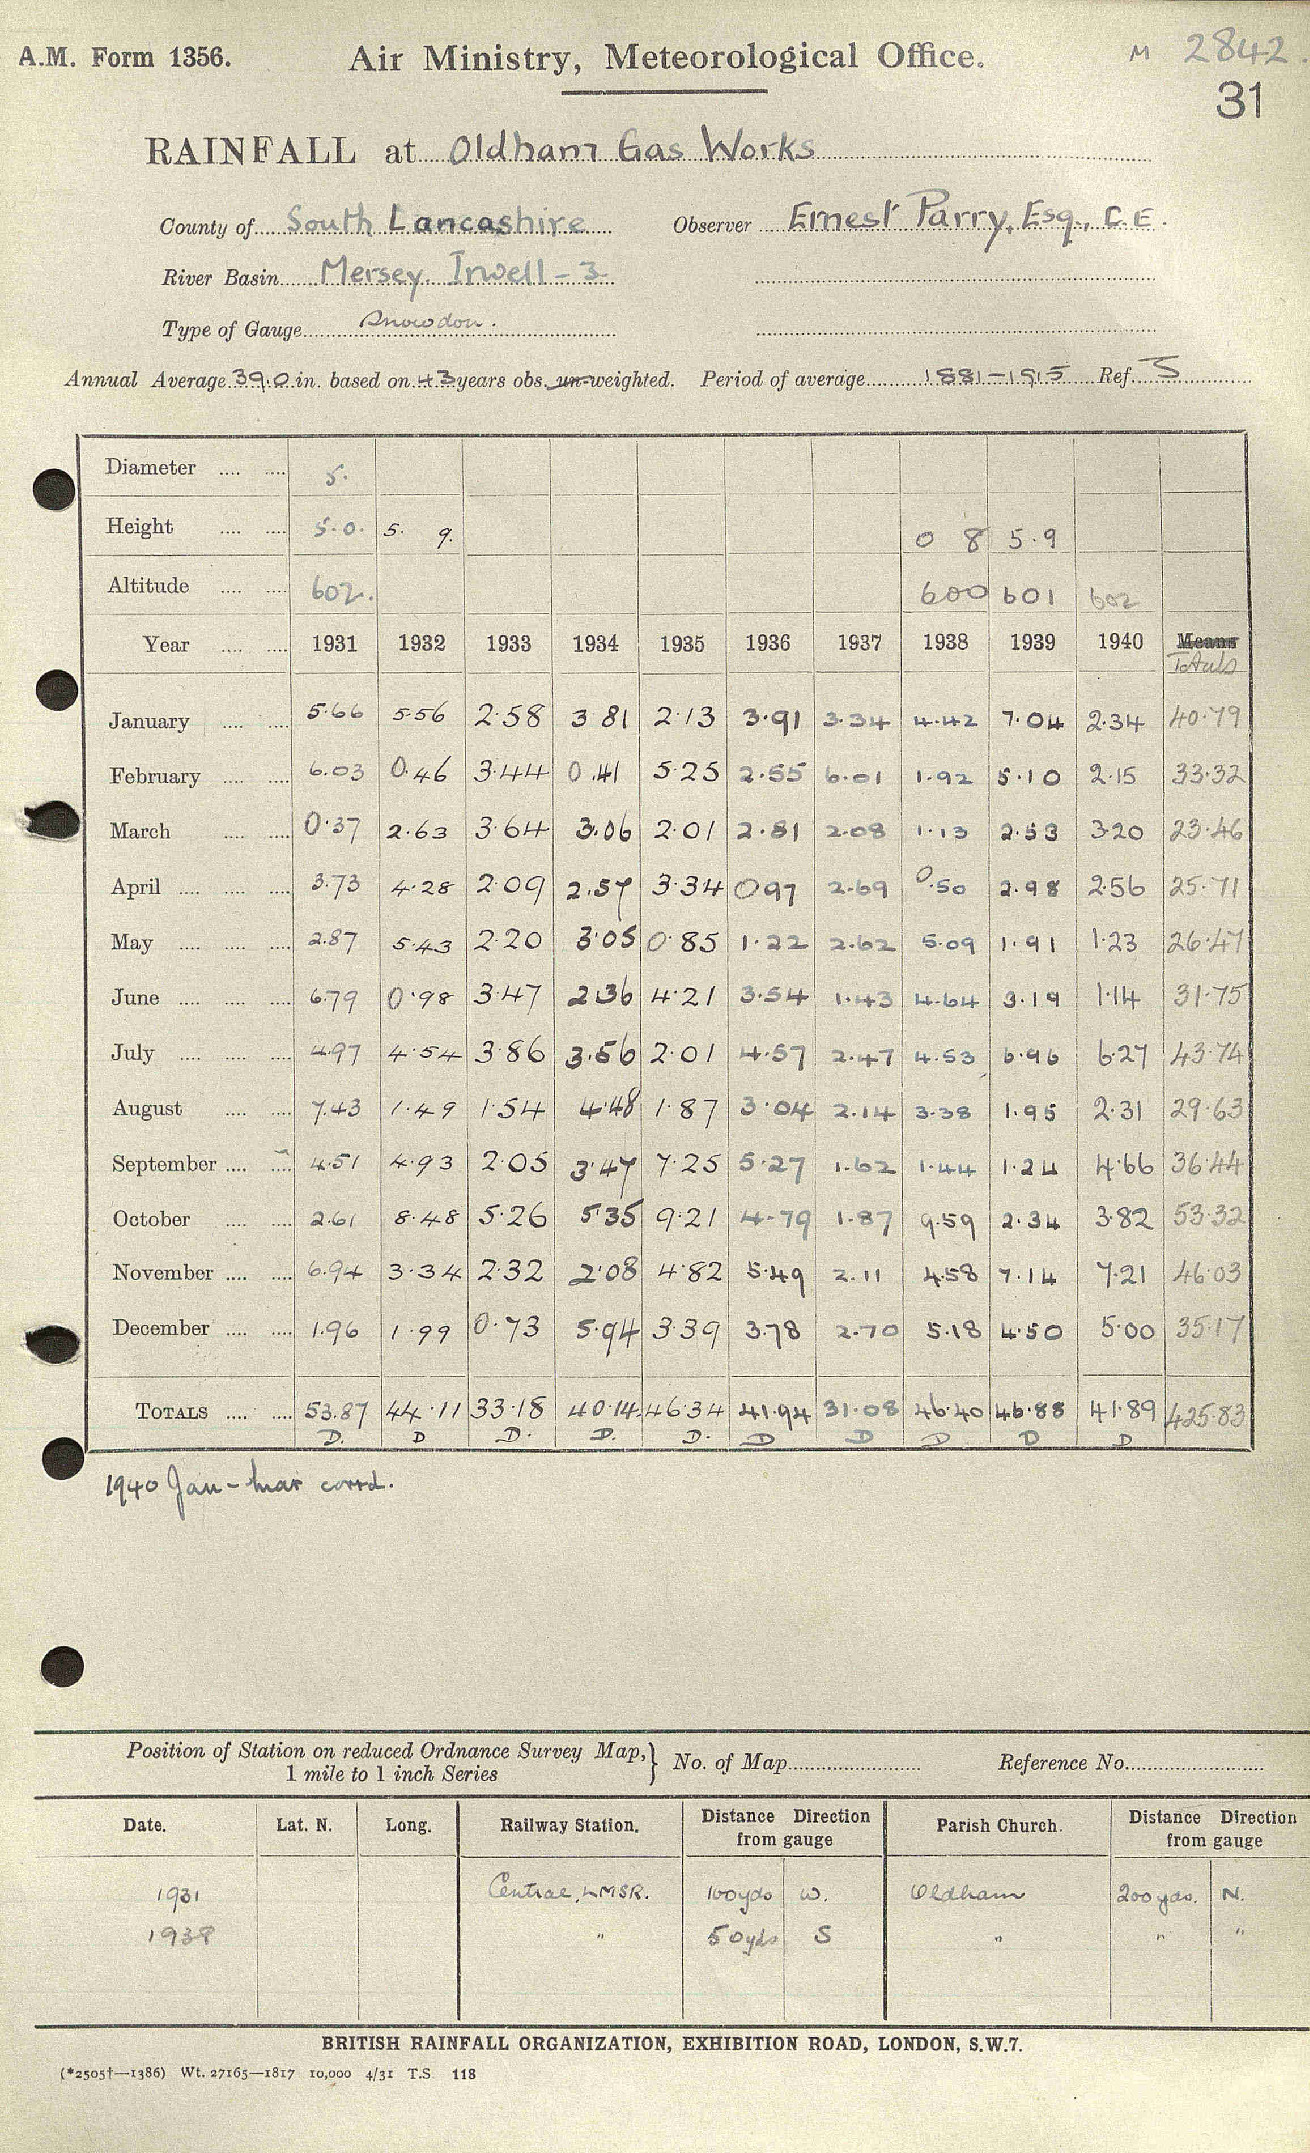 A.M. Form 1356.
Air Ministry, Meteorological Office.
M 2842.
31
RAINFALL at Oldham Gas Works
County of South Lancashire Observer Ernest Parry, Esq., C.E.
River Basin Mersey. Irwell - 3
Type of Gauge Snowdon.
Annual Average 39.0 in. based on 43 years obs. un-weighted. Period of average 1881-1915 Ref. S
Diameter 5.
Height 5.0. 5. 9. 0 8 5.9
Altitude 602. 600 601 602
Year 1931 1932 1933 1934 1935 1936 1937 1938 1939 1940 Means Totals
January 5.66 5.56 2.58 3 81 2.13 3.91 3.34 4.42 7.04 2.34 40.79
February 6.03 0.46 3.44 0.41 5.25 2.55 6.01 1.92 5.10 2.15 33.32
March 0.37 2.63 3.64 3.06 2.01 2.81 2.08 1.13 2.53 3.20 23.46
April 3.73 4.28 2.09 2.57 3.34 0.97 2.69 0.50 2.98 2.56 25.71
May 2.87 5.43 2.20 3.05 0.85 1.22 2.62 5.09 1.91 1.23 26.47
June 6.79 0.98 3.47 2.36 4.21 3.54 1.43 4.64 3.19 1.14 31.75
July 4.97 4.54 3.86 3.56 2.01 4.57 2.47 4.53 6.96 6.27 43.74
August 7.43 1.49 1.54 4.48 1.87 3.04 2.14 3.38 1.95 2.31 29.63
September 4.51 4.93 2.05 3.47 7.25 5.27 1.62 1.44 1.24 4.66 36.44
October 2.61 8.48 5.26 5.35 9.21 4.79 1.87 9.59 2.34 3.82 53.32
November 6.94 3.34 2.32 2.08 4.82 5.49 2.11 4.58 7.14 7.21 46.03
December 1.96 1.99 0.73 5.94 3.39 3.78 2.70 5.18 4.50 5.00 35.17
TOTALS 53.87 44.11 33.18 40.14 46.34 41.94 31.08 46.40 46.88 41.89 425.83
D. D D. D. D. D D D D D
1940 Jan - Mar corrd.
Position of Station on reduced Ordnance Survey Map, } No. of Map Reference No.
1 mile to 1 inch Series
Date. Lat. N. Long. Railway Station. Distance Direction from gauge Parish Church. Distance Direction from gauge
1931 Central, LMSR. 100yds W. Oldham 200yds. N.
1938 " 50yds S " " "
BRITISH RAINFALL ORGANIZATION, EXHIBITION ROAD, LONDON, S.W.7.
(*2505†—1386) Wt. 27165—1817 10,000 4/31 T.S. 118